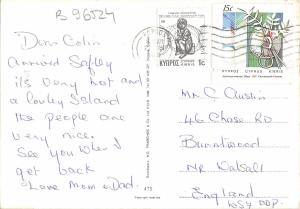 B 96524
Dear Colin
Arrived Safley
it's very hot and
a lovley Island
the people are
very nice.
See you when I
get back
Love Mom & Dad.
473
1c
ΚΥΠΡΟΣ
15c
ΚΥΠΡΟΣ CYPRUS KIBRIS
Mr C Austin
46 Chase Rd
Burntwood
Nr Walsall
England
WS7 0DP.